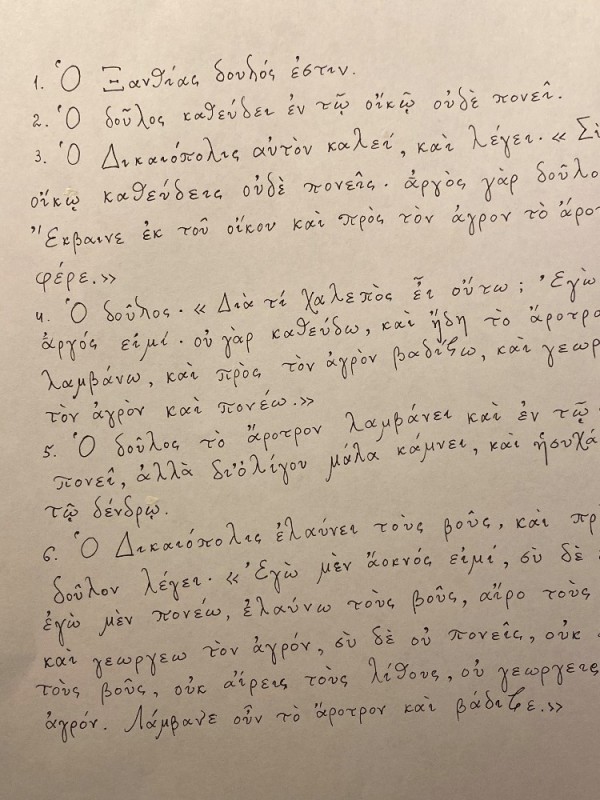 1. Ὁ Ξανθίας δουλός ἐστιν.
2. Ὁ δοῦλος καθεύδει ἐν τῷ οἴκῳ οὐδὲ πονεῖ.
3. Ὁ Δικαιόπολις αὐτὸν καλεί, καὶ λέγει· «
οἴκῳ καθεύδεις οὐδὲ πονεῖς· ἀργὸς γὰρ
Ἔκβαινε ἐκ τοῦ οἴκου καὶ πρὸς τὸν ἀγρον τὸ
φέρε.»
4. Ὁ δοῦλος· «Διὰ τί χαλεπὸς εἶ οὕτω; Ἐγὼ
ἀργός εἰμί· οὐ γὰρ καθεύδω, καὶ ἤδη τὸ
λαμβάνω, καὶ πρὸς τὸν ἀγρὸν βαδίζω, καὶ
τὸν ἀγρὸν καὶ πονέω.»
5. Ὁ δοῦλος τὸ ἄροτρον λαμβάνει καὶ ἐν τῷ
πονεῖ, ἀλλὰ δι'ὀλίγου μάλα κάμνει, καὶ
τῷ δένδρῳ.
6. Ὁ Δικαιόπολις ἐλαύνει τοὺς βοῦς, καὶ
δοῦλον λέγει· «Ἐγὼ μὲν ἄοκνός εἰμί, σὺ δὲ
ἐγὼ μὲν πονέω, ἐλαύνω τοὺς βοῦς, αἴρο τοὺς
καὶ γεωργεω τὸν ἀγρόν, σὺ δὲ οὐ πονεῖς, οὐκ
τοὺς βοῦς, οὐκ αἴρεις τοὺς λίθους, οὐ γεωργεις
ἀγρόν. Λάμβανε οὖν τὸ ἄροτρον καὶ βάδιζε.»